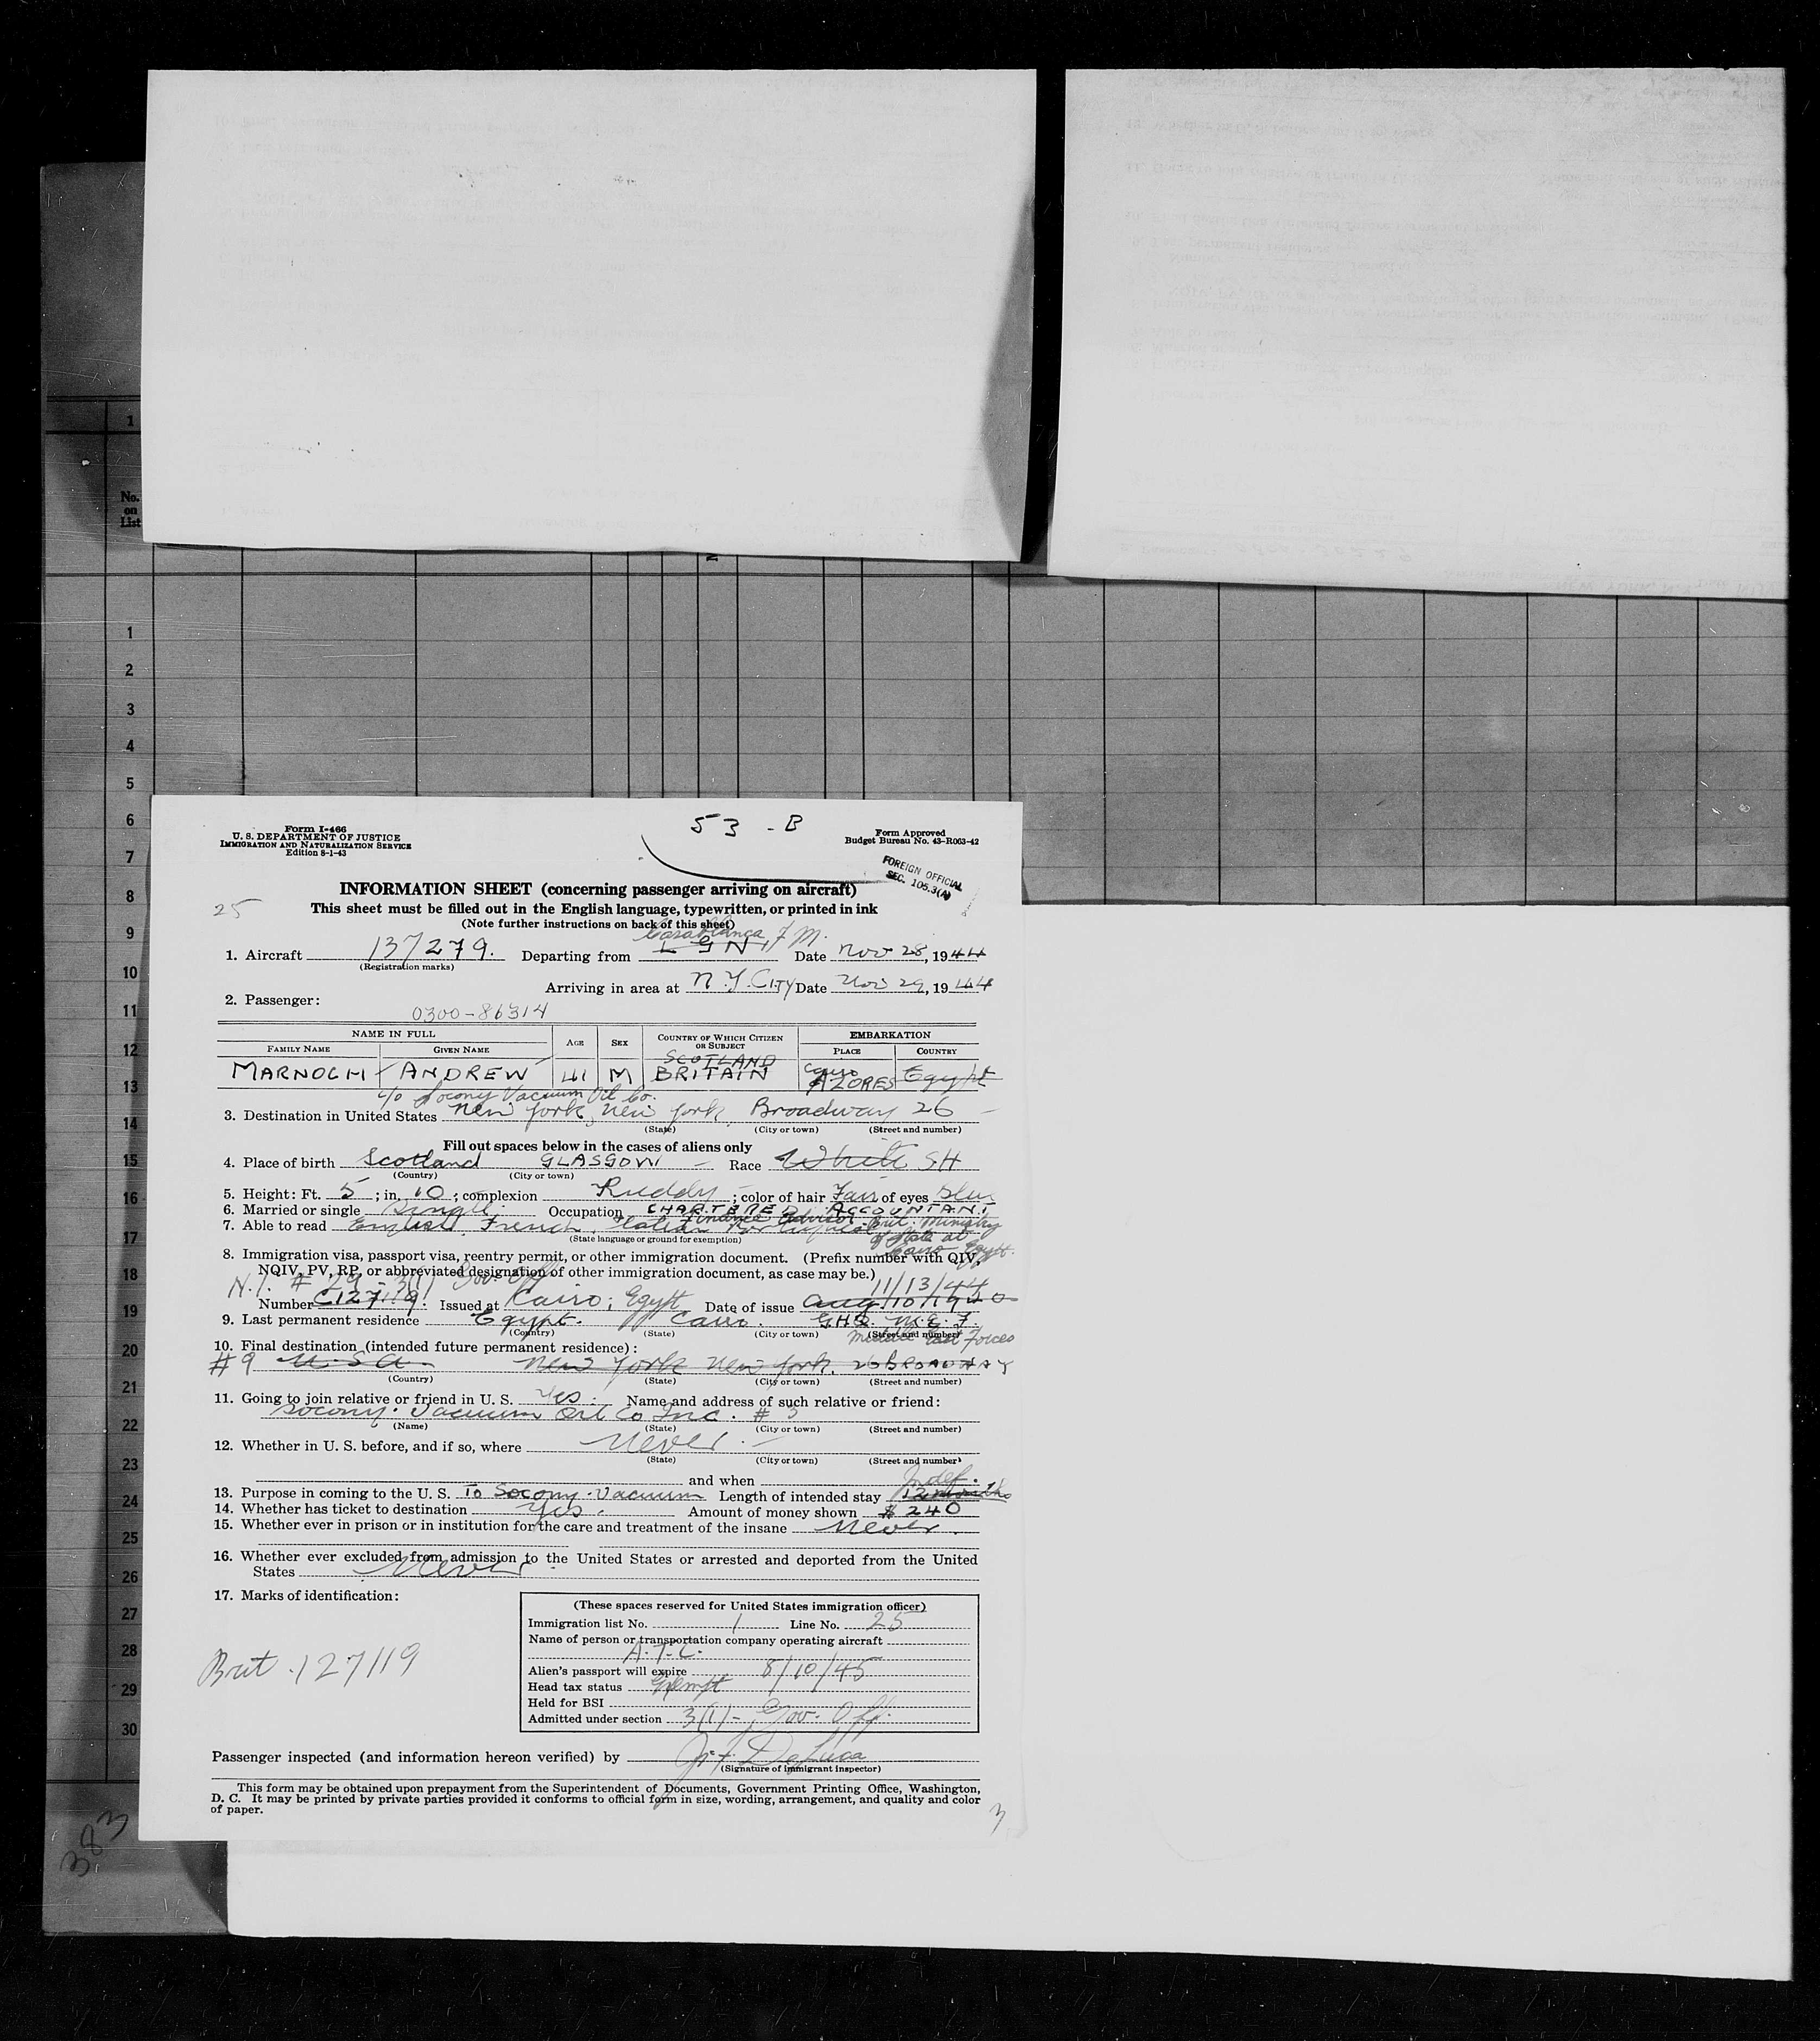 1
No.
on
List
1
2
3
4
5
6
7
8
9
10
11
12
13
14
15
16
17
18
19
20
21
22
23
24
25
26
27
28
29
30
383
Form I-466
U. S. DEPARTMENT OF JUSTICE
IMMIGRATION AND NATURALIZATION SERVICE
Edition 8-1-43
53 - B
Form Approved
Budget Bureau No. 43-R063-42
FOREIGN OFFICIAL
SEC. 105.3(A)
INFORMATION SHEET (concerning passenger arriving on aircraft)
25
This sheet must be filled out in the English language, typewritten, or printed in ink
(Note further instructions on back of this sheet)
Casablanca, F M.
1. Aircraft 137279. Departing from Date Nov 28, 1944
(Registration marks)
Arriving in area at N.Y. CITY Date Nov 29, 1944
2. Passenger:
0300-86314
NAME IN FULL AGE SEX COUNTRY OF WHICH CITIZEN OR SUBJECT EMBARKATION
FAMILY NAME GIVEN NAME PLACE COUNTRY
SCOTLAND Cairo
MARNOCH ANDREW 41 M BRITAIN AZORES Egypt
c/o Socony Vacuum Oil Co.
3. Destination in United States New York, New York, Broadway 26
(State) (City or town) (Street and number)
Fill out spaces below in the cases of aliens only
4. Place of birth Scotland GLASGOW Race White SH
(Country) (City or town)
5. Height: Ft. 5; in. 10; complexion Ruddy; color of hair Fair of eyes Blue
6. Married or single Single Occupation CHARTERED ACCOUNTANT
Finance Advisor Brit. Ministry
7. Able to read English, French, Italian
of State at
(State language or ground for exemption)
Cairo Egypt.
8. Immigration visa, passport visa, reentry permit, or other immigration document. (Prefix number with QIV,
NQIV, PV, RP, or abbreviated designation of other immigration document, as case may be.)
N.I. # 29 - 3(1) Gov. Off 11/13/44
Number C127119. Issued at Cairo; Egypt Date of issue Aug/10/1940
9. Last permanent residence Egypt. Cairo. GHQ. M.E.F.
(Country) (State) (City or town) (Street and number)
Middle East Forces
10. Final destination (intended future permanent residence):
#9 U.S.A. New York New York. 26 BROADWAY
(Country) (State) (City or town) (Street and number)
11. Going to join relative or friend in U. S. Yes. Name and address of such relative or friend:
Socony. Vacuum Oil Co Inc. # 3
(Name) (State) (City or town) (Street and number)
12. Whether in U. S. before, and if so, where Never.
(State) (City or town) (Street and number)
and when
Indef.
13. Purpose in coming to the U. S. To Socony-Vacuum Length of intended stay 12 months
14. Whether has ticket to destination Yes. Amount of money shown $240
15. Whether ever in prison or in institution for the care and treatment of the insane Never.
16. Whether ever excluded from admission to the United States or arrested and deported from the United
States Never
17. Marks of identification:
Brit. 127119
(These spaces reserved for United States immigration officer)
Immigration list No. 1 Line No. 25
Name of person or transportation company operating aircraft
A.T.C.
Alien's passport will expire 8/10/45
Head tax status Exempt
Held for BSI
Admitted under section 3(1)- Gov. Off.
Passenger inspected (and information hereon verified) by J. F. DeLuca
(Signature of immigrant inspector)
This form may be obtained upon prepayment from the Superintendent of Documents, Government Printing Office, Washington,
D. C. It may be printed by private parties provided it conforms to official form in size, wording, arrangement, and quality and color
of paper.
3